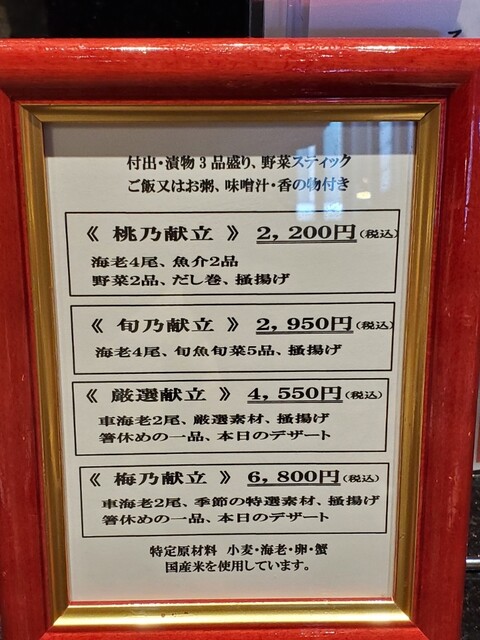 付出・漬物3品盛り、野菜スティック
ご飯又はお粥、味噌汁・香の物付き
《 桃乃献立 》 2,200円(税込)
海老4尾、魚介2品
野菜2品、だし巻、掻揚げ
《 旬乃献立 》 2,950円(税込)
海老4尾、旬魚旬菜5品、掻揚げ
《 厳選献立 》 4,550円(税込)
車海老2尾、厳選素材、掻揚げ
箸休めの一品、本日のデザート
《 梅乃献立 》 6,800円(税込)
車海老2尾、季節の特選素材、掻揚げ
箸休めの一品、本日のデザート
特定原材料 小麦・海老・卵・蟹
国産米を使用しています。